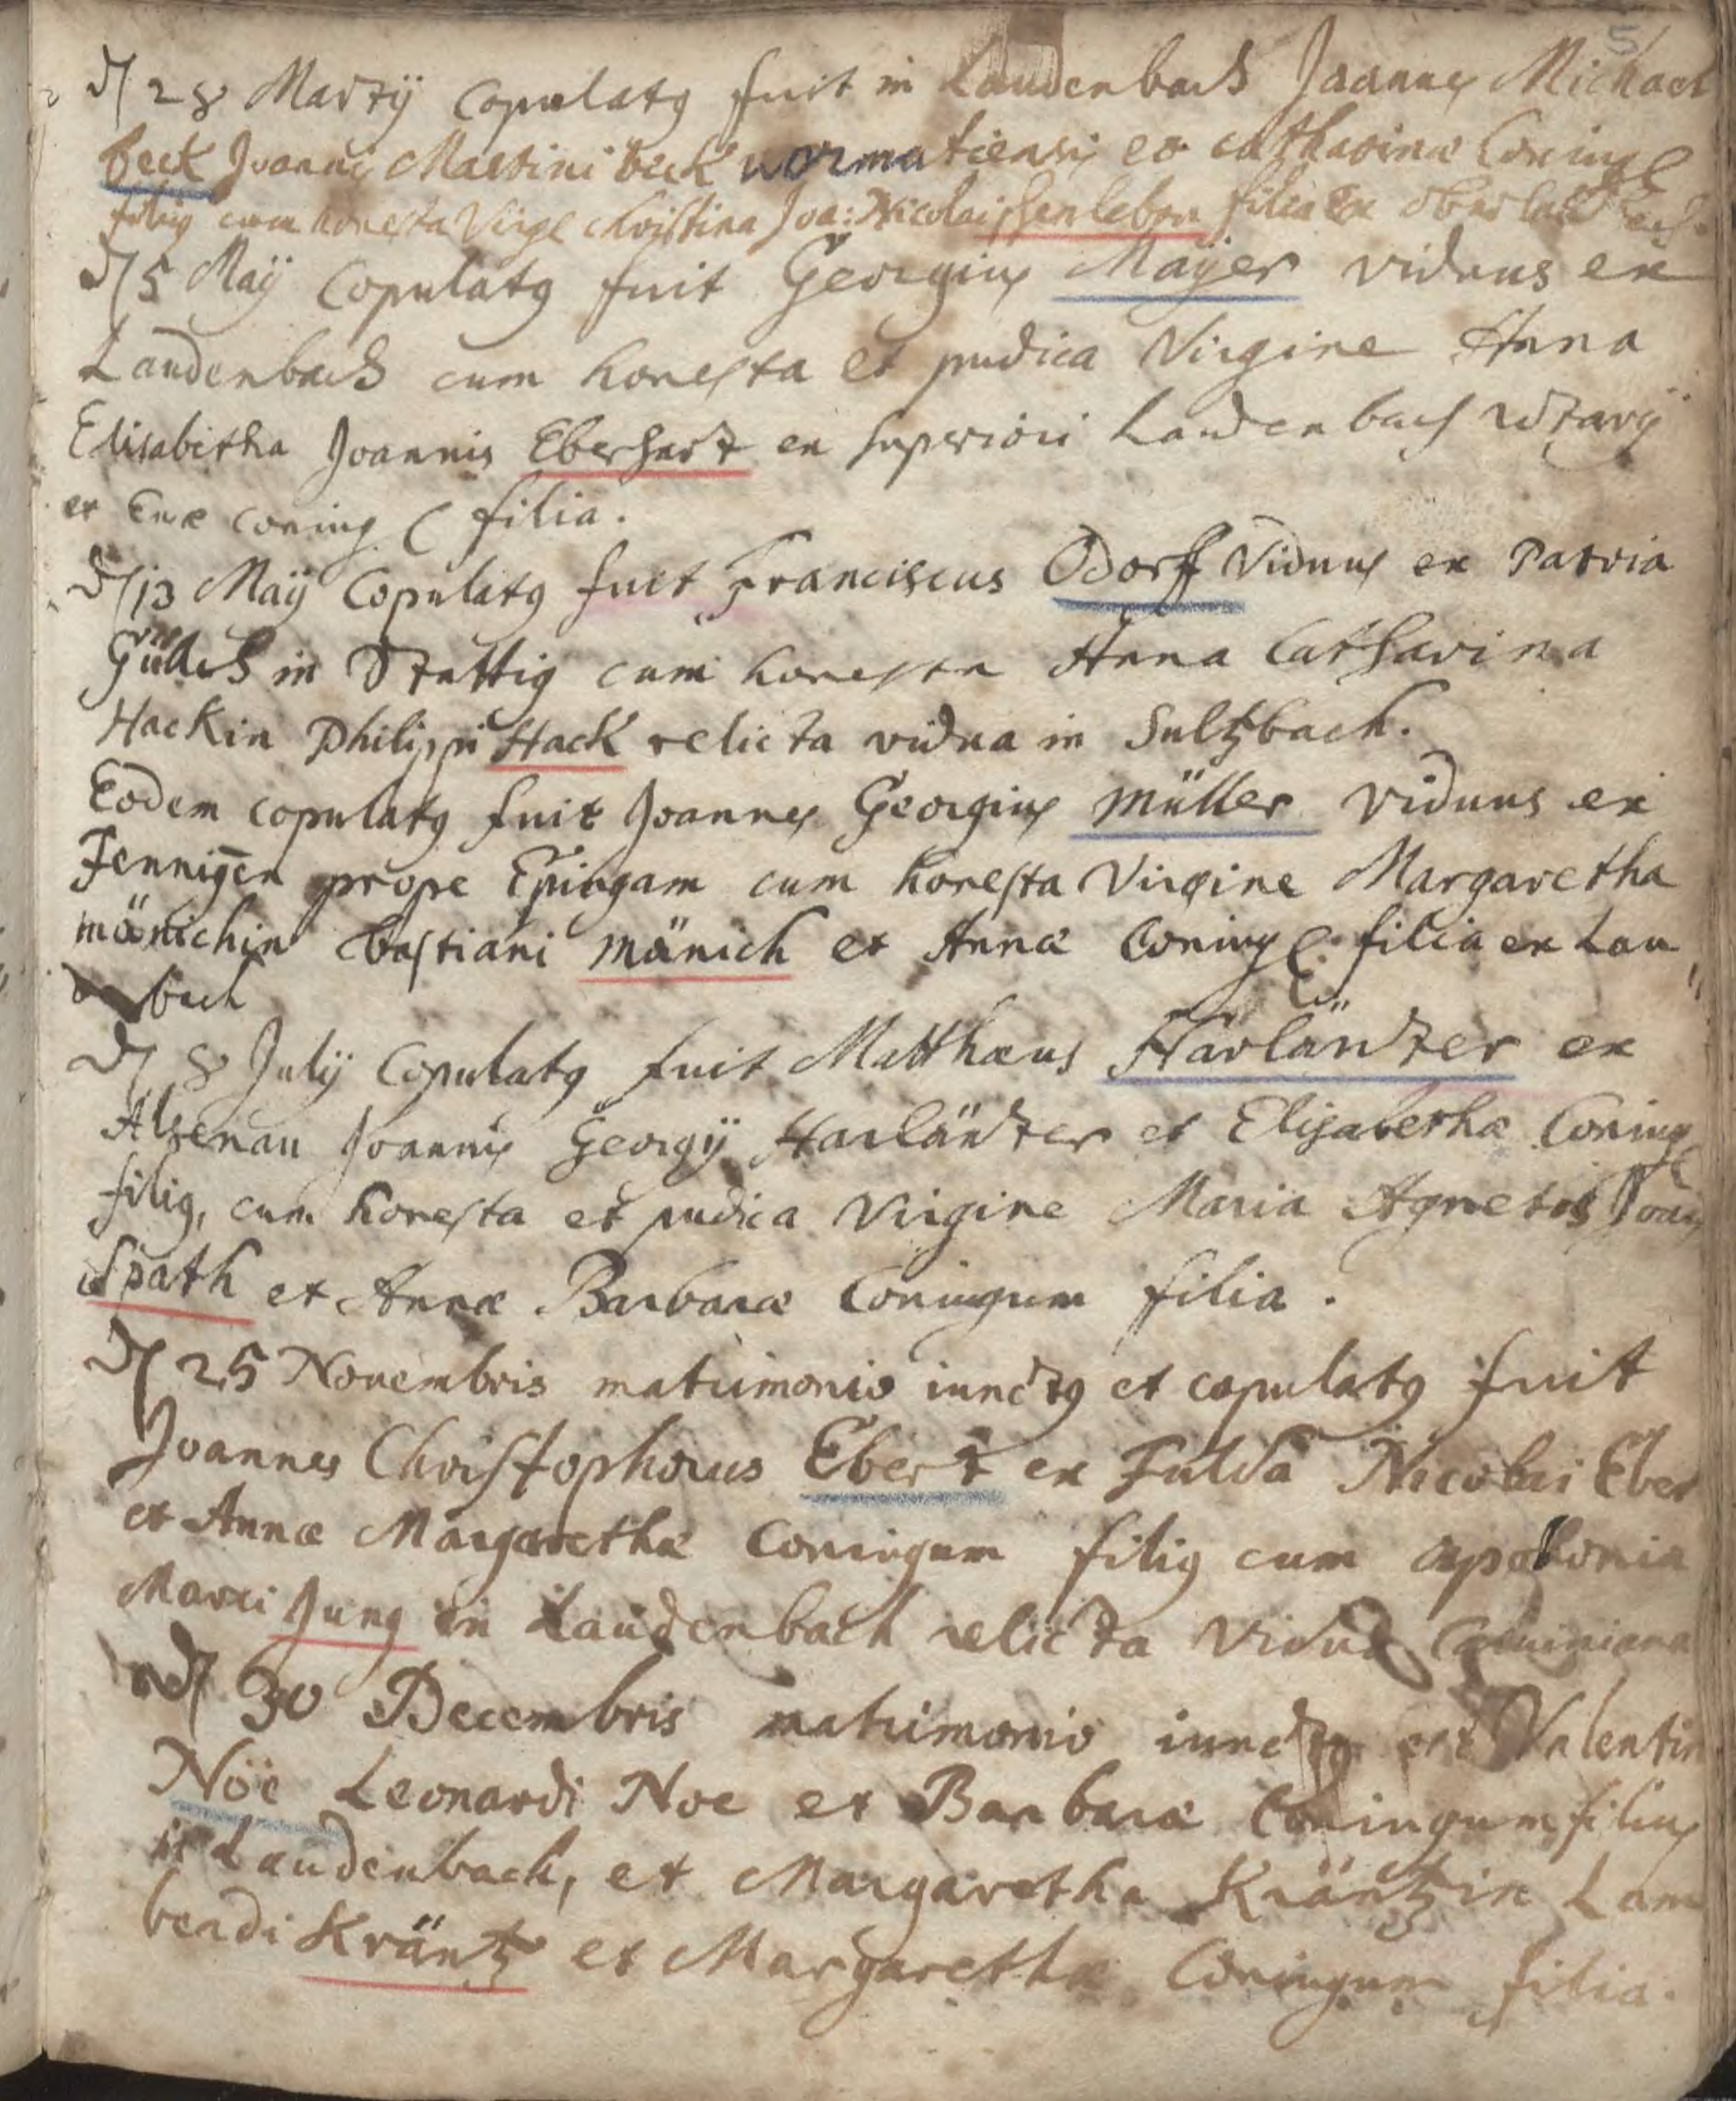 5
d 28 Martÿ Copulatg fuit in Laudenbach Joannes Michael
beck Joannis Martini beck wormatiensis et catharinæ Coniug
filig cum honesta Virge christina Joa: Nicolai filia ex
d 5 Maÿ Copulatg fuit Georgius Maÿer viduus ex
Laudenbach cum honesta et pudica Virgine Anna
Elisabetha Joannis Eberhart ex superiori Laudenbach
et Evæ coniug filia.
d 13 Maÿ Copulatg fuit Franciscus Odorff Viduus ex Patria
in cum honesta Anna Catharina
Hackin Philippi Hack relicta vidua in Sultzbach.
Eodem copulatg fuit Joannes Georgius Müller viduus ex
prope Epingam cum honesta Virgine Margaretha
mönichin bastiani mänich et Annæ Coniug. filia ex Lau
denbach
d 8 Julÿ Copulatg fuit Matthæus Harländter ex
Alzenau Joannis Georgÿ Harländter et Elisabethæ Coniug
filig, cum honesta et pudica Virgine Maria Agnetis Joais
Spath et Annæ Barbaræ Coniugum filia.
d 25 Novembris matrimonio iunctg et copulatg fuit
Joannes Christophorus Ebert ex Fulda Nicolai Eber
et Annæ Margarethæ Coniugum filig cum apollonia
Marci Jung in Laudenbach relicta Vidua Calviniana
d 30 Decembris matrimonio iunctg est Valentin
Nöe Leonardi Noe et Barbaræ Coniugum filius
in Laudenbach, et Margaretha Kräntzin Lam
berdi Kräntz et Margarethæ Coniugum filia.